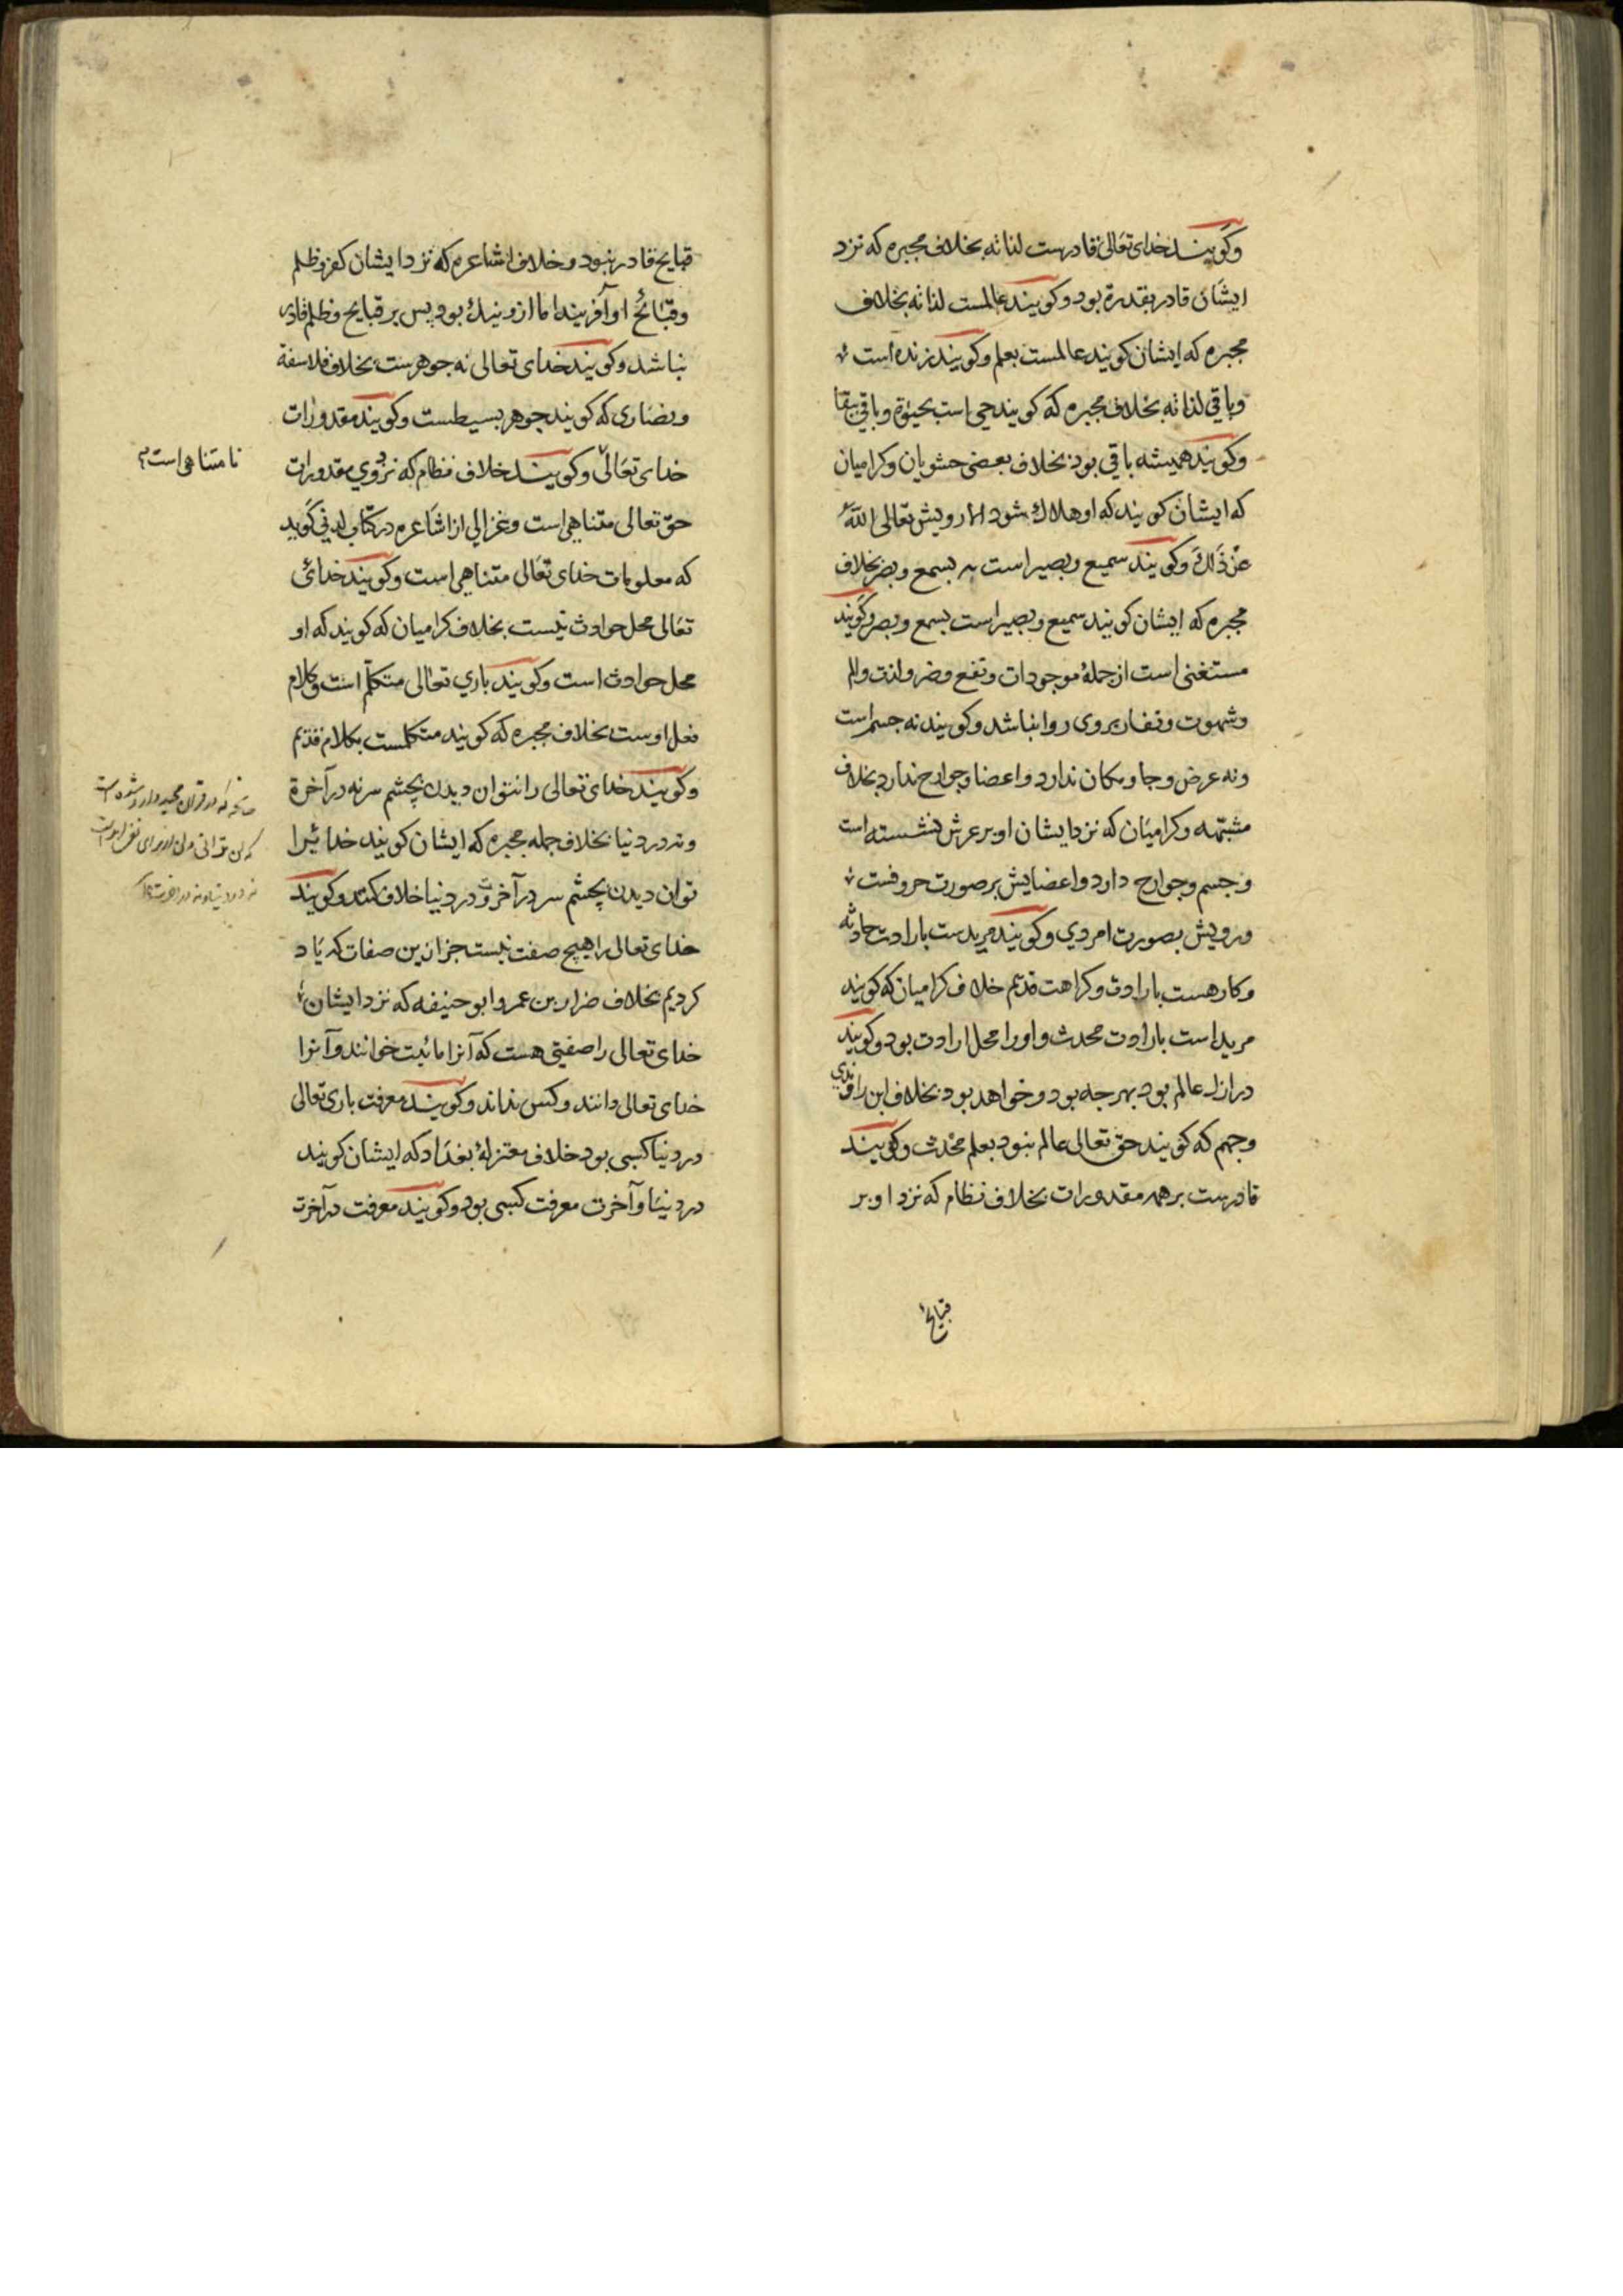 وکویند خدای تعالی قادرست لذاته بخلاف مجبره که نزد
ایشان قادر بقدرة بود وکویند عالمست لذاته بخلاف
مجبره که ایشان کویند عالمست بعلم وکویند زنده است
وباقی لذاته بخلاف مجبره که کویند حی است بحیوة وباقی ببقا
وکویند همیشه باقی بود بخلاف بعضی حشویان وکرامیان
که ایشان کویند که او هلاك شود الا رویش تعالی الله
عن ذلك وکویند سمیع وبصیر است نه بسمع وبصر بخلاف
مجبره که ایشان کویند سمیع وبصیر است بسمع وبصر وکویند
مستغنی است از جملهٔ موجودات ونفع وضر ولذت والم
وشهوت ونفار بروی روا نباشد وکویند نه جسم است
ونه عرض وجا ومکان ندارد واعضا وجوارح ندارد بخلاف
مشبهه وکرامیان که نزد ایشان او بر عرش نشسته است
وجسم وجوارح دارد واعضایش بر صورت حروفست
ورویش بصورت امردی وکویند مریدست بارادت حادثه
وکارهست بارادت وکراهت قدیم خلاف کرامیان که کویند
مرید است بارادت محدث واورا محل ارادت بود وکویند
در ازل عالم بود بهرچه بود وخواهد بود بخلاف ابن راوندی
وجهم که کویند حق تعالی عالم نبود بعلم محدث وکویند
قادرست بر همه مقدورات بخلاف نظام که نزد او بر
قبایح
قبایح قادر نبود وخلاف اشاعره که نزد ایشان کفر وظلم
وقبائح او آفریند اما ازو نیك بود پس بر قبایح وظلم قادر
نباشد وکویند خدای تعالی نه جوهرست بخلاف فلاسفة
ونصاری که کویند جوهر بسیطست وکویند مقدورات
خدای تعالی وکویند خلاف نظام که نزد وی مقدورات
نامتناهی است
حق تعالی متناهی است وغزالی از اشاعره در کتاب لدنی کوید
که معلومات خدای تعالی متناهی است وکویند خدای
تعالی محل حوادث نیست بخلاف کرامیان که کویند که او
محل حوادث است وکویند باری تعالی متکلم است وکلام
فعل اوست بخلاف مجبره که کویند متکلمست بکلام قدیم
وکویند خدای تعالی را نتوان دیدن بچشم سر نه در آخرة
ونه در دنیا بخلاف جمله مجبره که ایشان کویند خدائیرا
توان دیدن بچشم سر در آخرت ودر دنیا خلاف کنند وکویند
چنانچه که در قران مجید وارد شده است
که لن ترانی ولن از برای نفی ابد است
نه در دنیا ونه در اخرت
خدای تعالی را هیچ صفت نیست جز ازین صفات که یاد
کردیم بخلاف ضرار بن عمر وابو حنیفه که نزد ایشان
خدای تعالی را صفتی هست که آنرا مائیت خوانند وآنرا
خدای تعالی دانند وکس نداند وکویند معرفت باری تعالی
در دنیا کسبی بود خلاف معتزلهٔ بغداد که ایشان کویند
در دنیا وآخرت معرفت کسبی بود وکویند معرفت در آخرت